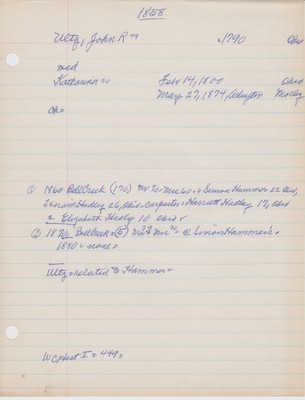 1858
Ultz, John R 79 c1790 Ohio
med
Katharina 70 Feb 14, 1800 Ohio
May 27, 1874, Arlington
Ch=
① 1860 Bell Creek (170) MV 70 = Mrs 60 = & Simon Hammer 22 Ohio,
Hadley 26, Ohio = Carpenter = Harriett Hadley 17, Ohio
& Elizabeth Healy 10 Ohio
② 1870 Bell Creek = (5) @ Simon Hammer's =
1880 = none =
Ultz = related to Hammer =
W C Hist I = 449 =